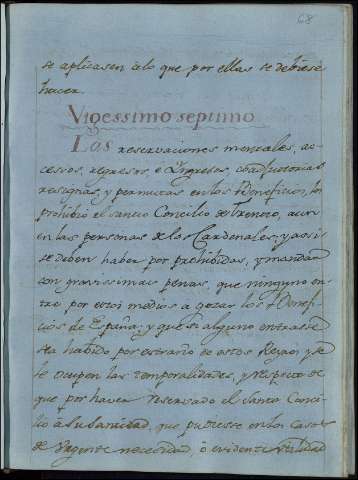 68
se aplicasen a lo que por ellas se debiese
hacer.
Vigessimo septimo
Las reservaciones mentales, ac-
cesos, regresos, é Yngresos, coadjutorias
resignas, y permutas en los Beneficios, lo
prohibió el santo Concilio de Trento, aun
en las personas de los Cardenales, y asi
se deben haber por prohibidas, y mandar
con gravissimas penas, que ninguno en-
tre por estos medios a gozar los Benefi-
cios de España, y que si alguno entrase
sea habido por estraño de estos Reynos, y se
le ocupen las temporalidades, y respecto de
que por haver reservado el Santo Conci-
lio à su Santidad, que pudiesse en los Casos
de Urgente necesidad, ò evidente utilidad